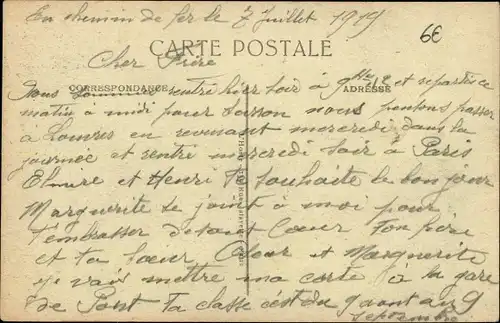 En chemin de fer le 7 Juillet 1919
6€
CARTE POSTALE
Cher Frère
CORRESPONDANCE
ADRESSE
Nous sommes rentré hier soir à 9 Hes 1/2 et repartis ce
matin à midi pour nous pensons passer
à Louvres en revenant mercredi dans la
journée et rentré mercredi soir à Paris
Elmire et Henri te souhaite le bonjour
Marguerite se joint à moi pour
t'embrasser de tout Coeur Ton frère
et ta soeur Oscar et Marguerite
je vais mettre ma carte à la gare
de Pont ta classe c'est du 9 août au 9
septembre